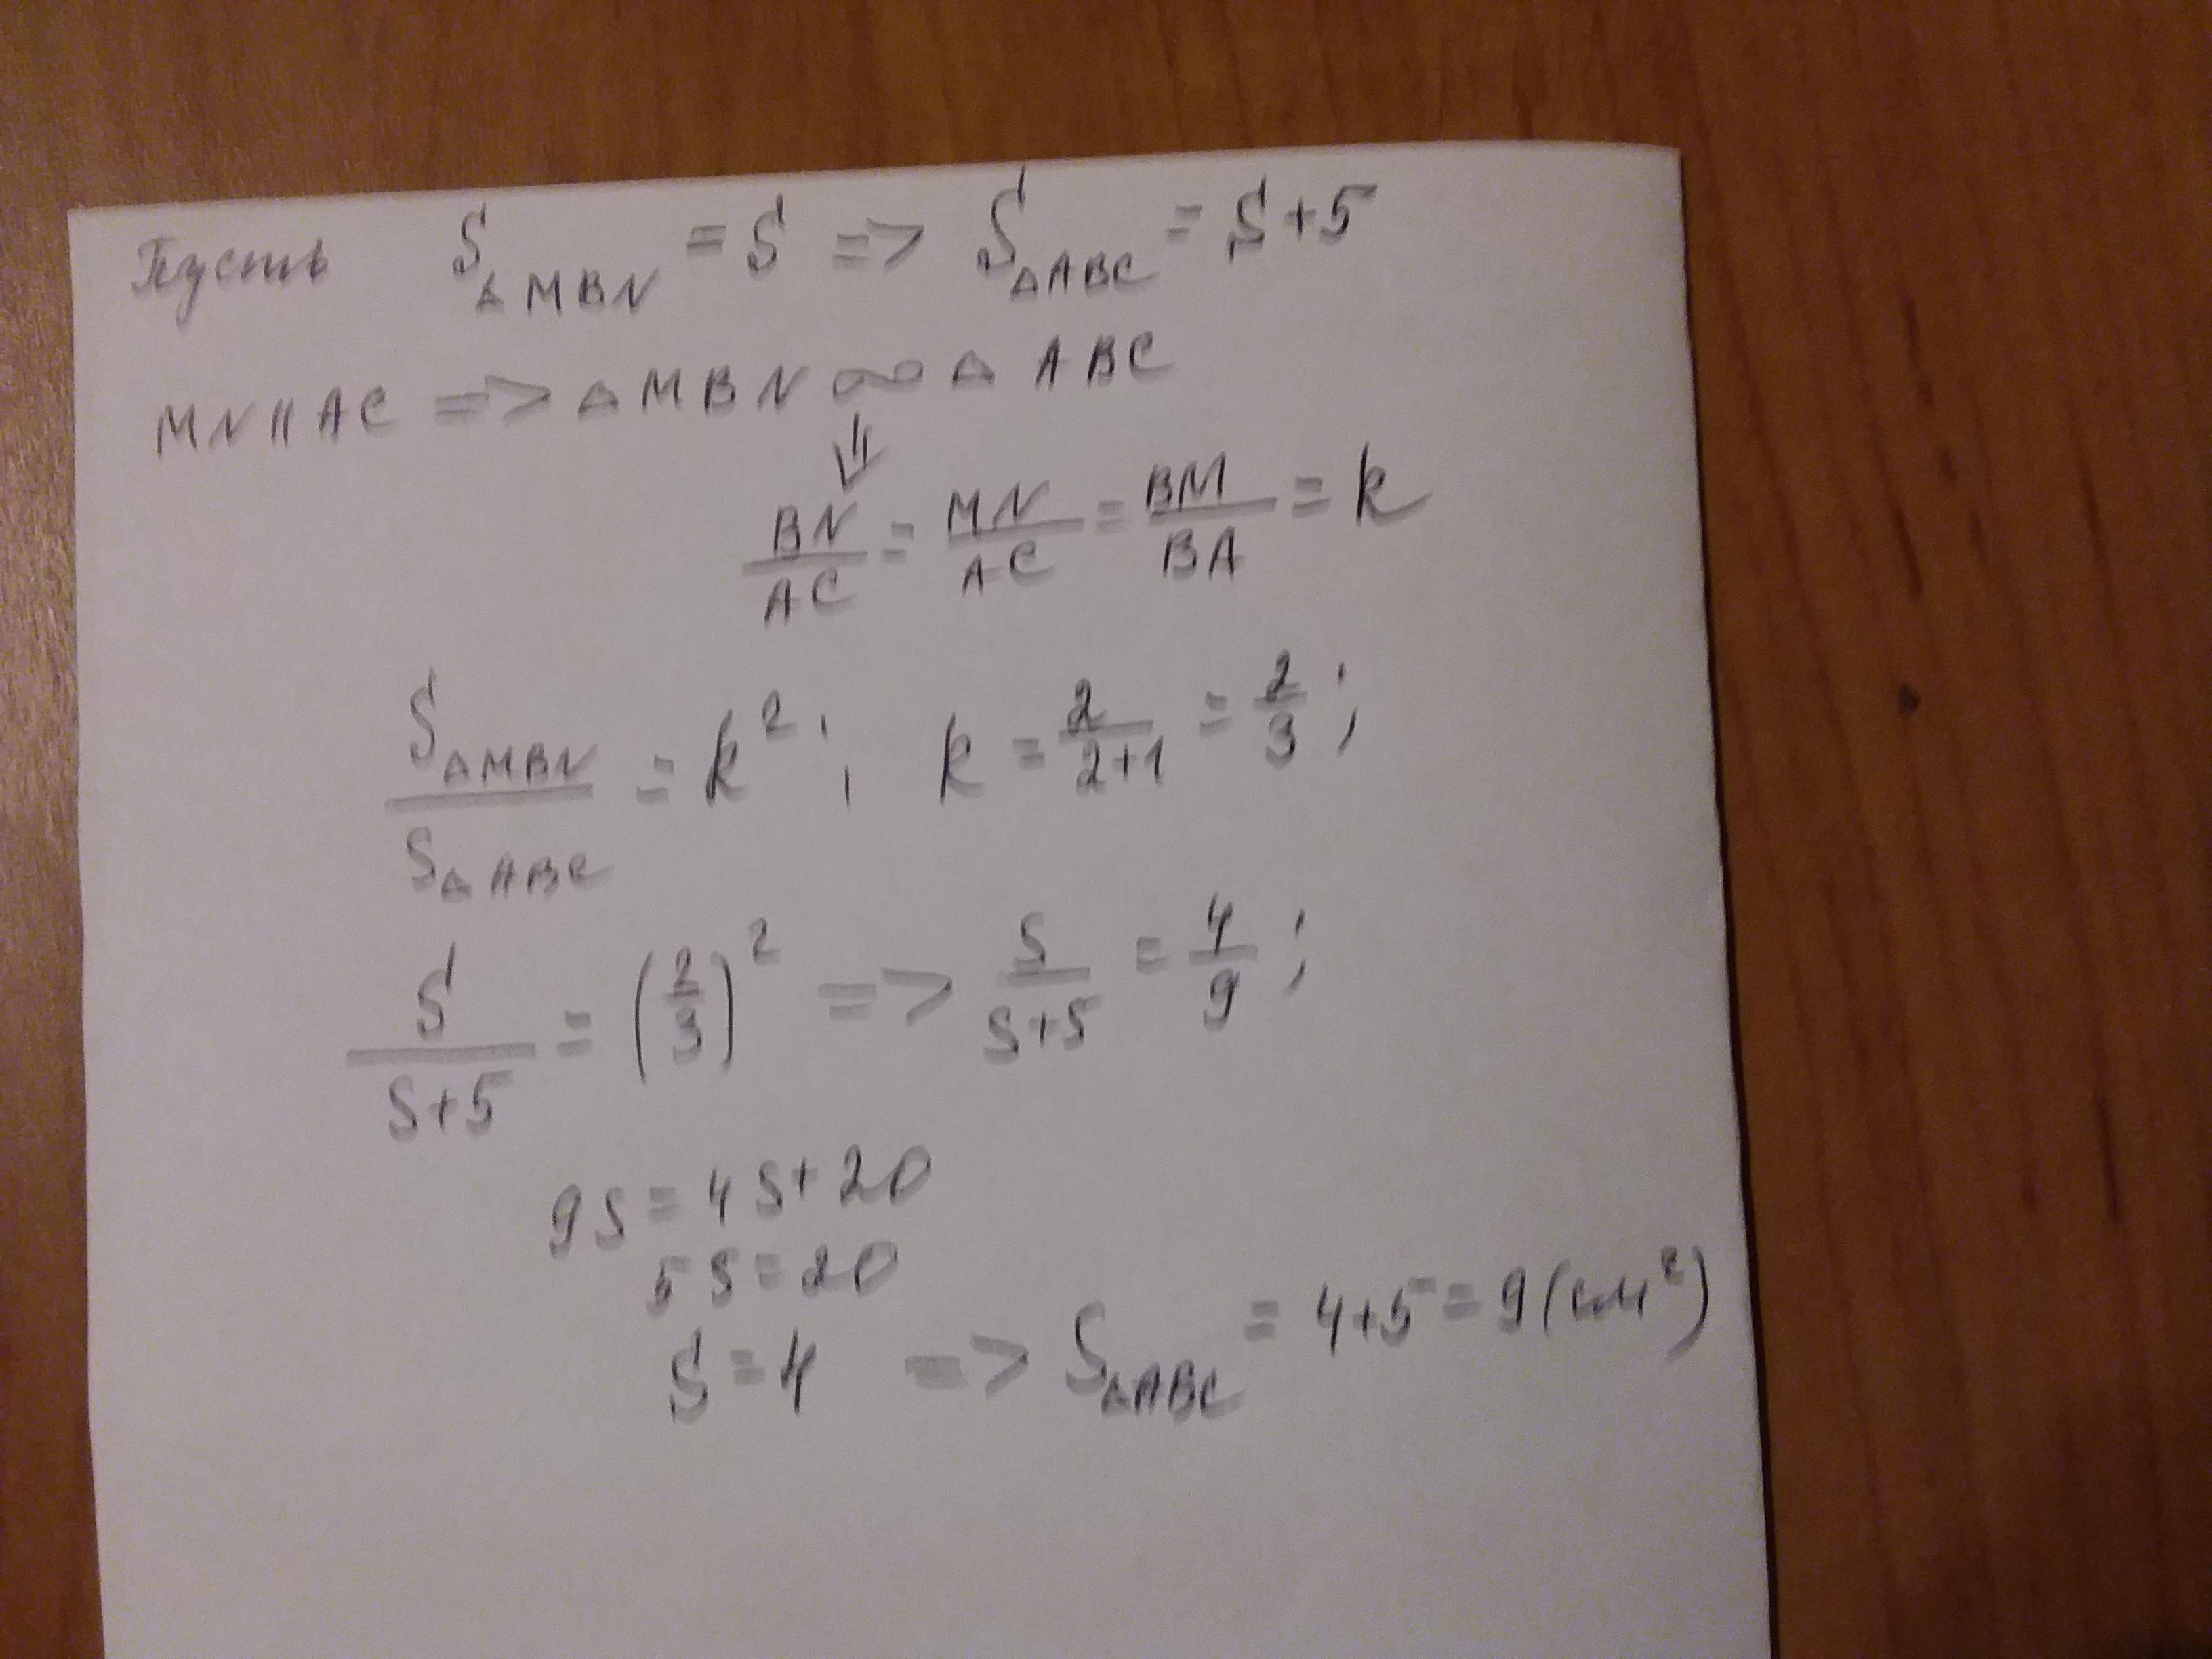 Пусть S△MBN = S => S△ABC = S+5
MN || AC => △MBN ∞ △ABC
⇓
BN/AC = MN/AC = BM/BA = k
S△MBN/S△ABC = k²; k = 2/(2+1) = 2/3;
S/(S+5) = (2/3)² => S/(S+5) = 4/9;
9S = 4S+20
5S = 20
S = 4 => S△ABC = 4+5 = 9 (см²)